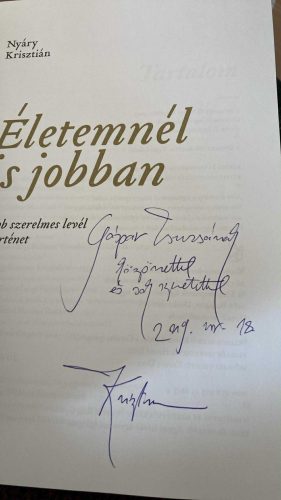 Nyáry
Krisztián
Tartalom
Életemnél
is jobban
bb szerelmes levél
örténet
Gáspár Zsuzsának
köszönettel
és sok szeretettel
2019. 18
Krisztián